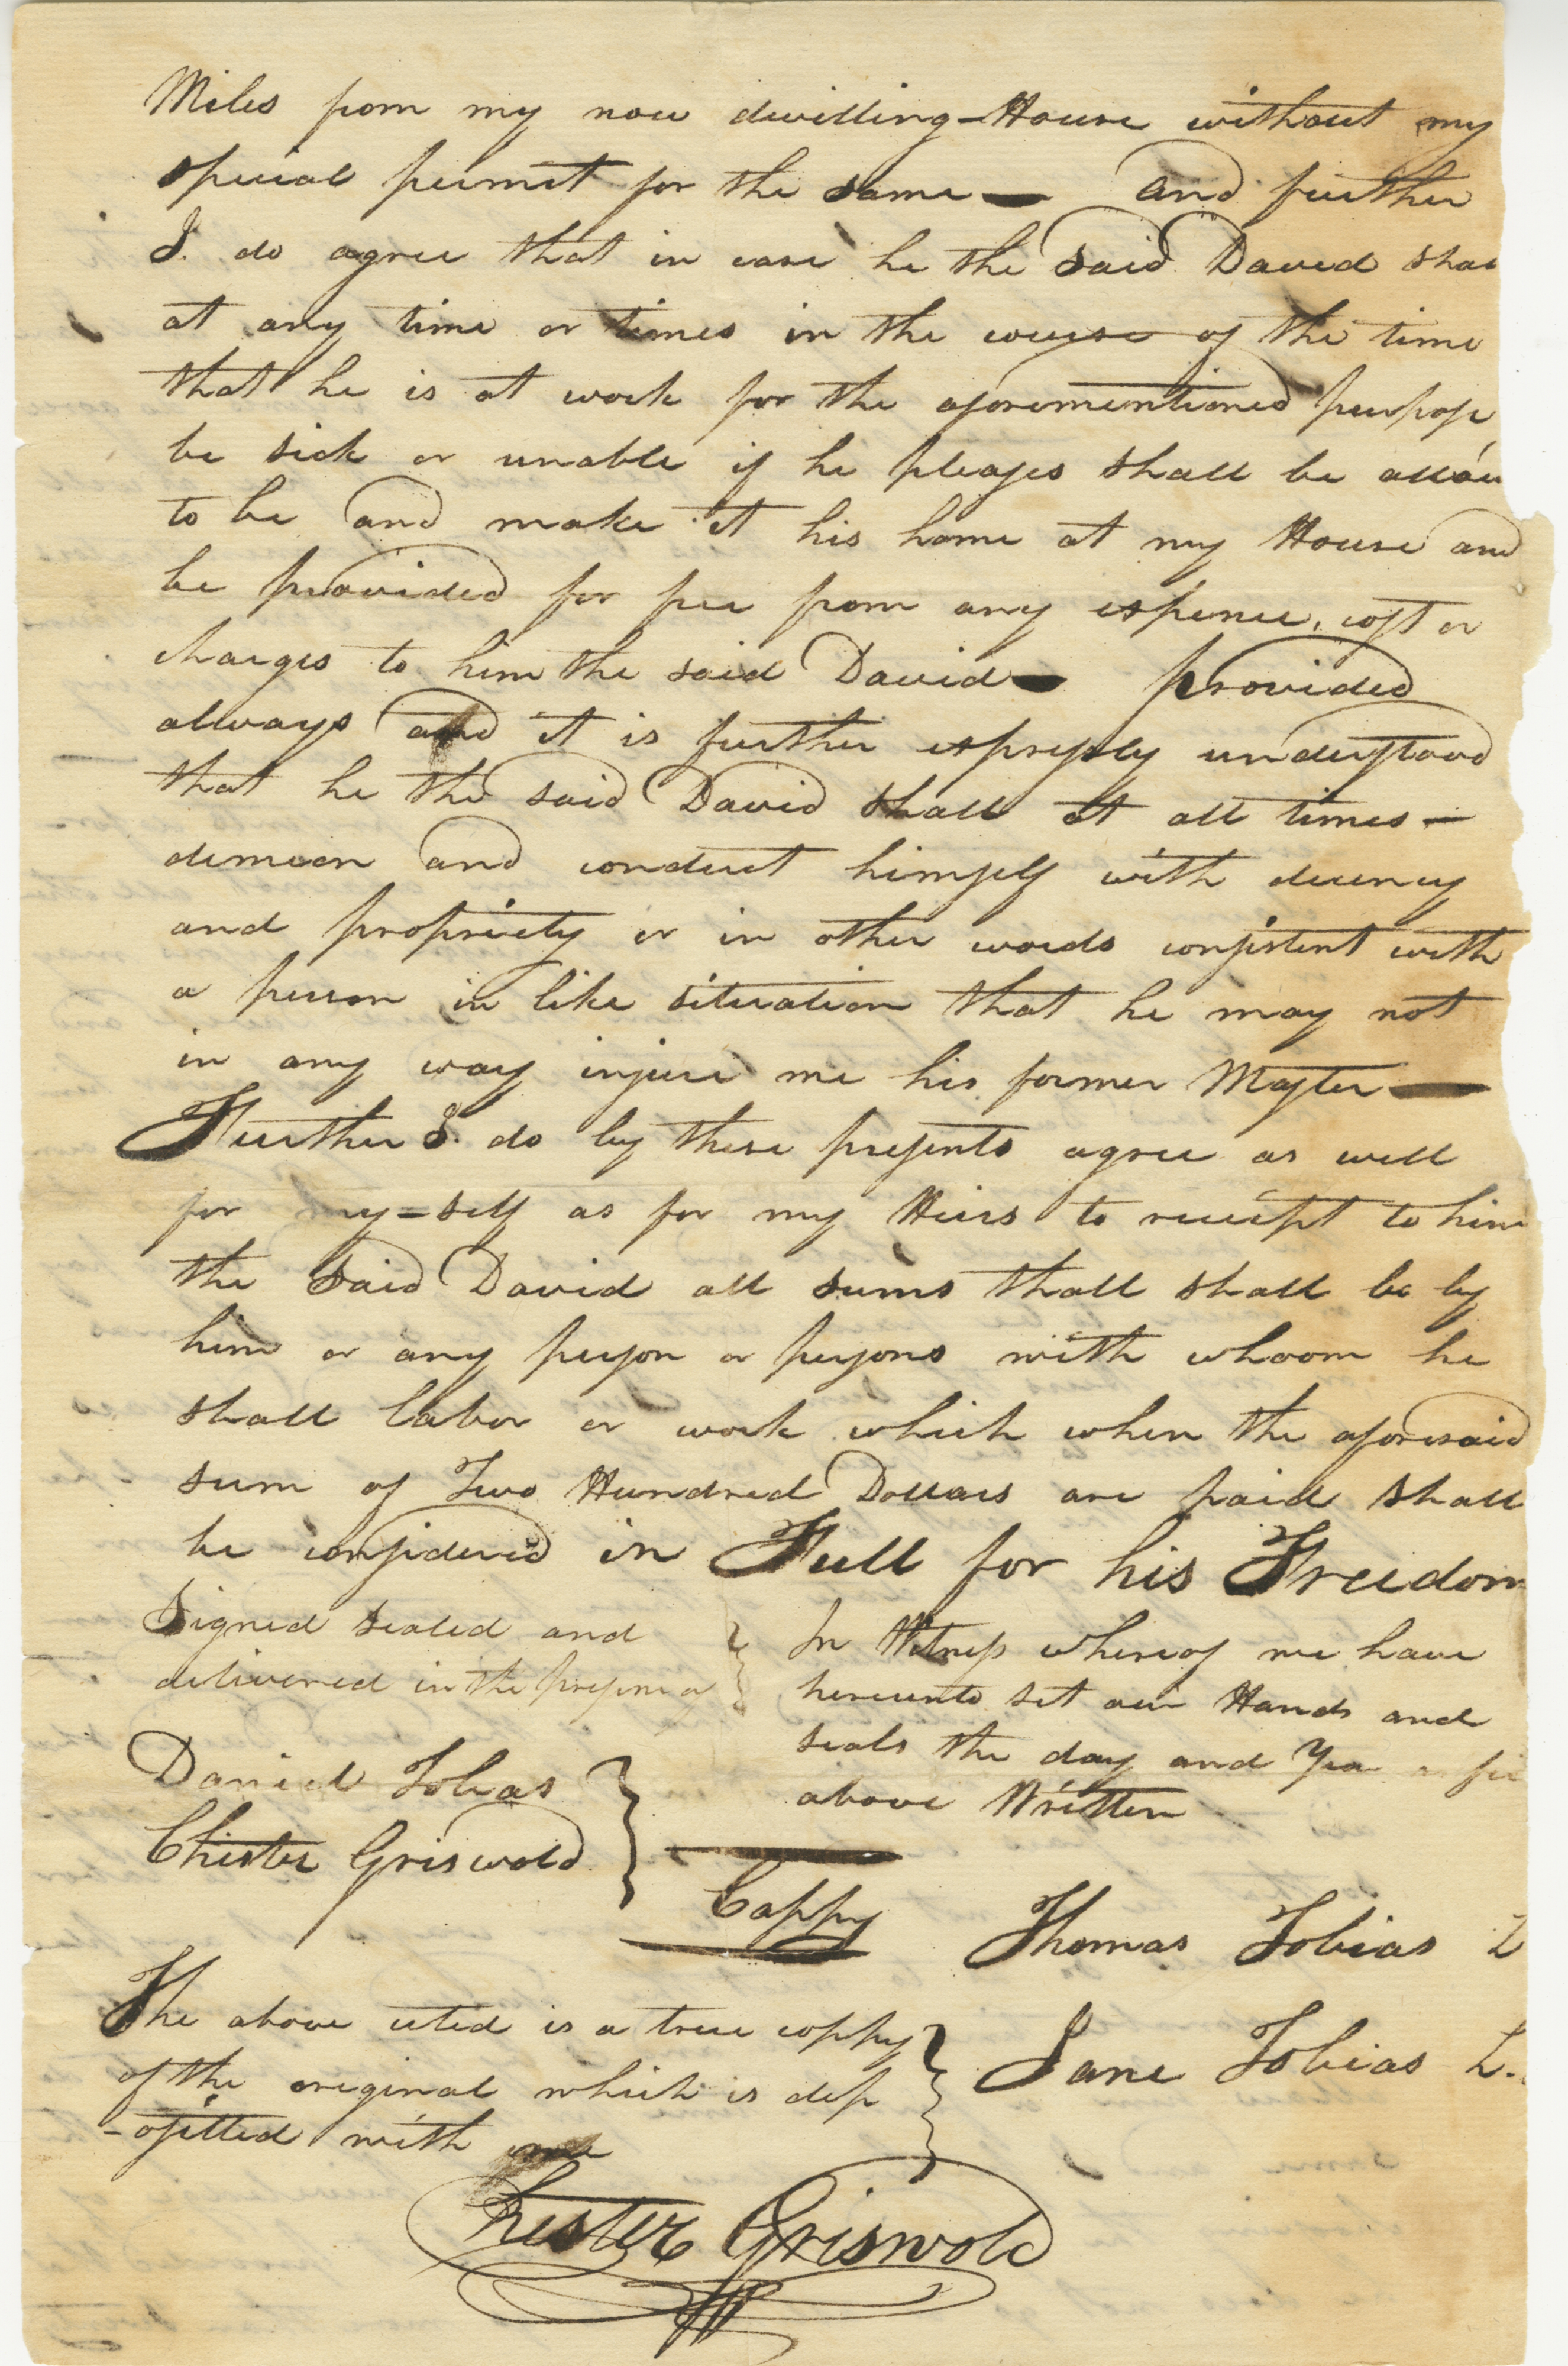 Miles from my now dwelling-House without my
special permit for the same — and further
I. do agree that in case he the said David shal
at any time or times in the course of the time
that he is at work for the aforementioned purpose
be sick or unable if he pleases shall be allow
to be and make it his home at my House and
be provided for free from any expence, cost or
charges to him the said David — provided
always and it is further expressly understood
that he the said David shall at all times —
demean and conduct himself with decency
and propriety or in other words consistent with
a person in like situation that he may not
in any way injure me his former Master —
Further I. do by these presents agree as well
for my=self as for my Heirs to receipt to him
the said David all sums thall shall be by
him or any person or persons with whoom he
shall labor or work which when the aforesaid
sum of Two Hundred Dollars are paid shall
be considered in Full for his Freedom
Signed sealed and
delivered in the presence of
Daniel Tobias
Chester Griswold
In Witness whereof we have
hereunto set our Hands and
seals the day and Year
above Written
Coppy
Thomas Tobias L
Jane Tobias L.
The above cited is a true coppy
of the original which is dep
-ositted with me
Chester Griswold